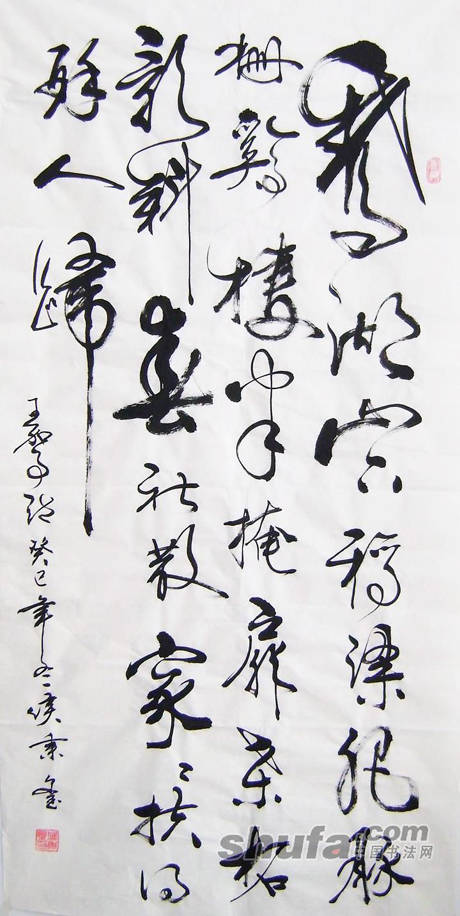 鵝湖山下稻粱肥豚
柵鷄棲半掩扉桑柘
影斜春社散家々扶得
醉人歸
王駕 癸巳年冬
shufa.com
中国书法网